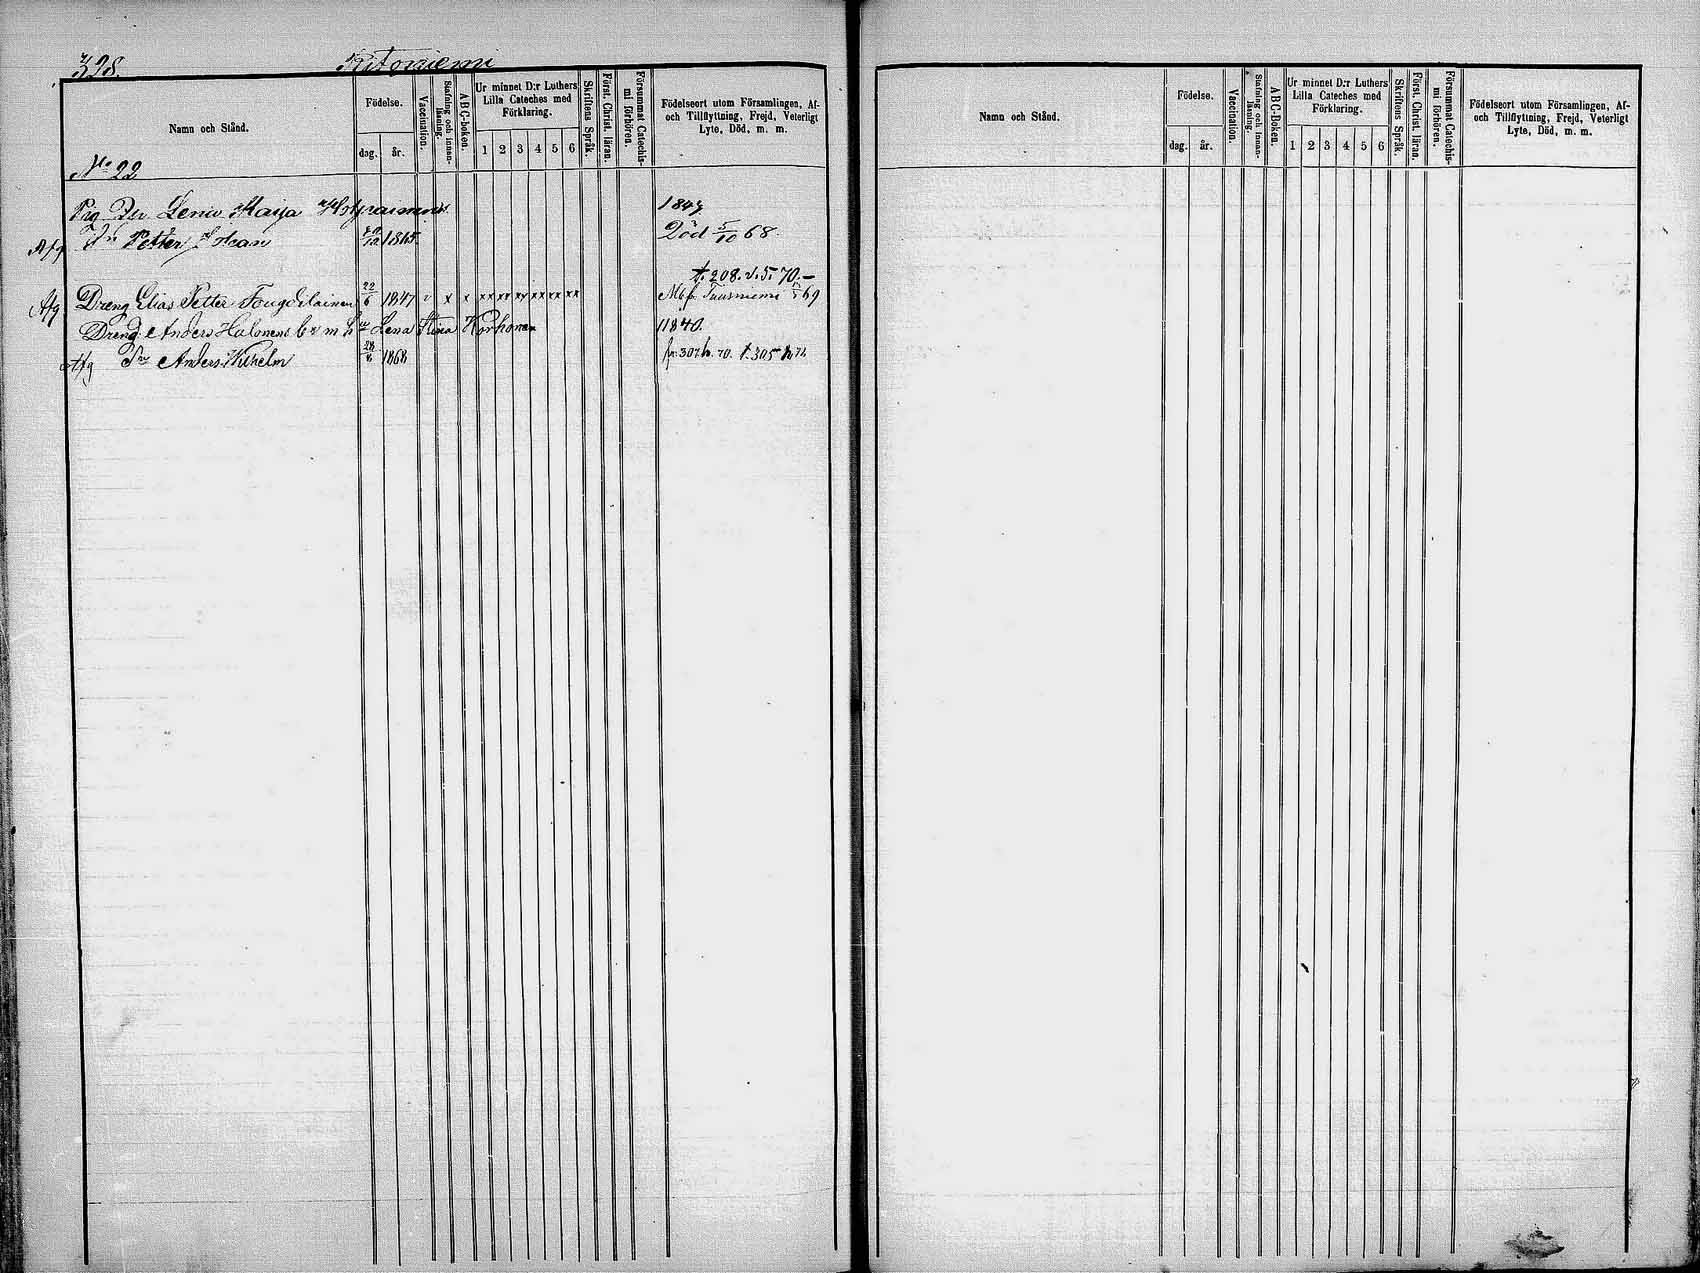 328.
Ritoniemi
Namn och Stånd.
Födelse.
dag.
år.
Vaccination.
Stafning och innan-läsning.
A B C-boken.
Ur minnet D:r Luthers Lilla Cateches med Förklaring.
1 2 3 4 5 6
Skriftens Språk.
Först. Christ. läran.
Försummat Catechis-mi förhören.
Födelseort utom Församlingen, Af- och Tillflyttning, Frejd, Veterligt Lyte, Död, m. m.
No 22
Pig. Lena Maija 184
Afg Petter Johan 1865 Död 5/10 68
t. 208. v. 5. 70.-
Afg Dreng Elias Petter 22/6 1847 v x x xx xx xx xx xx xx Tuusniemi 69
Dreng Anders Halonens Lena Stina Korhonen 1840.
Afg Anders Wilhelm 28/8 1868 fr. 307 70. t. 305 72
Namn och Stånd.
Födelse.
dag.
år.
Vaccination.
Stafning och innan-läsning.
A B C-Boken.
Ur minnet D:r Luthers Lilla Cateches med Förklaring.
1 2 3 4 5 6
Skriftens Språk.
Först. Christ. läran.
Försummat Catechis-mi förhören.
Födelseort utom Församlingen, Af- och Tillflyttning, Frejd, Veterligt Lyte, Död, m. m.